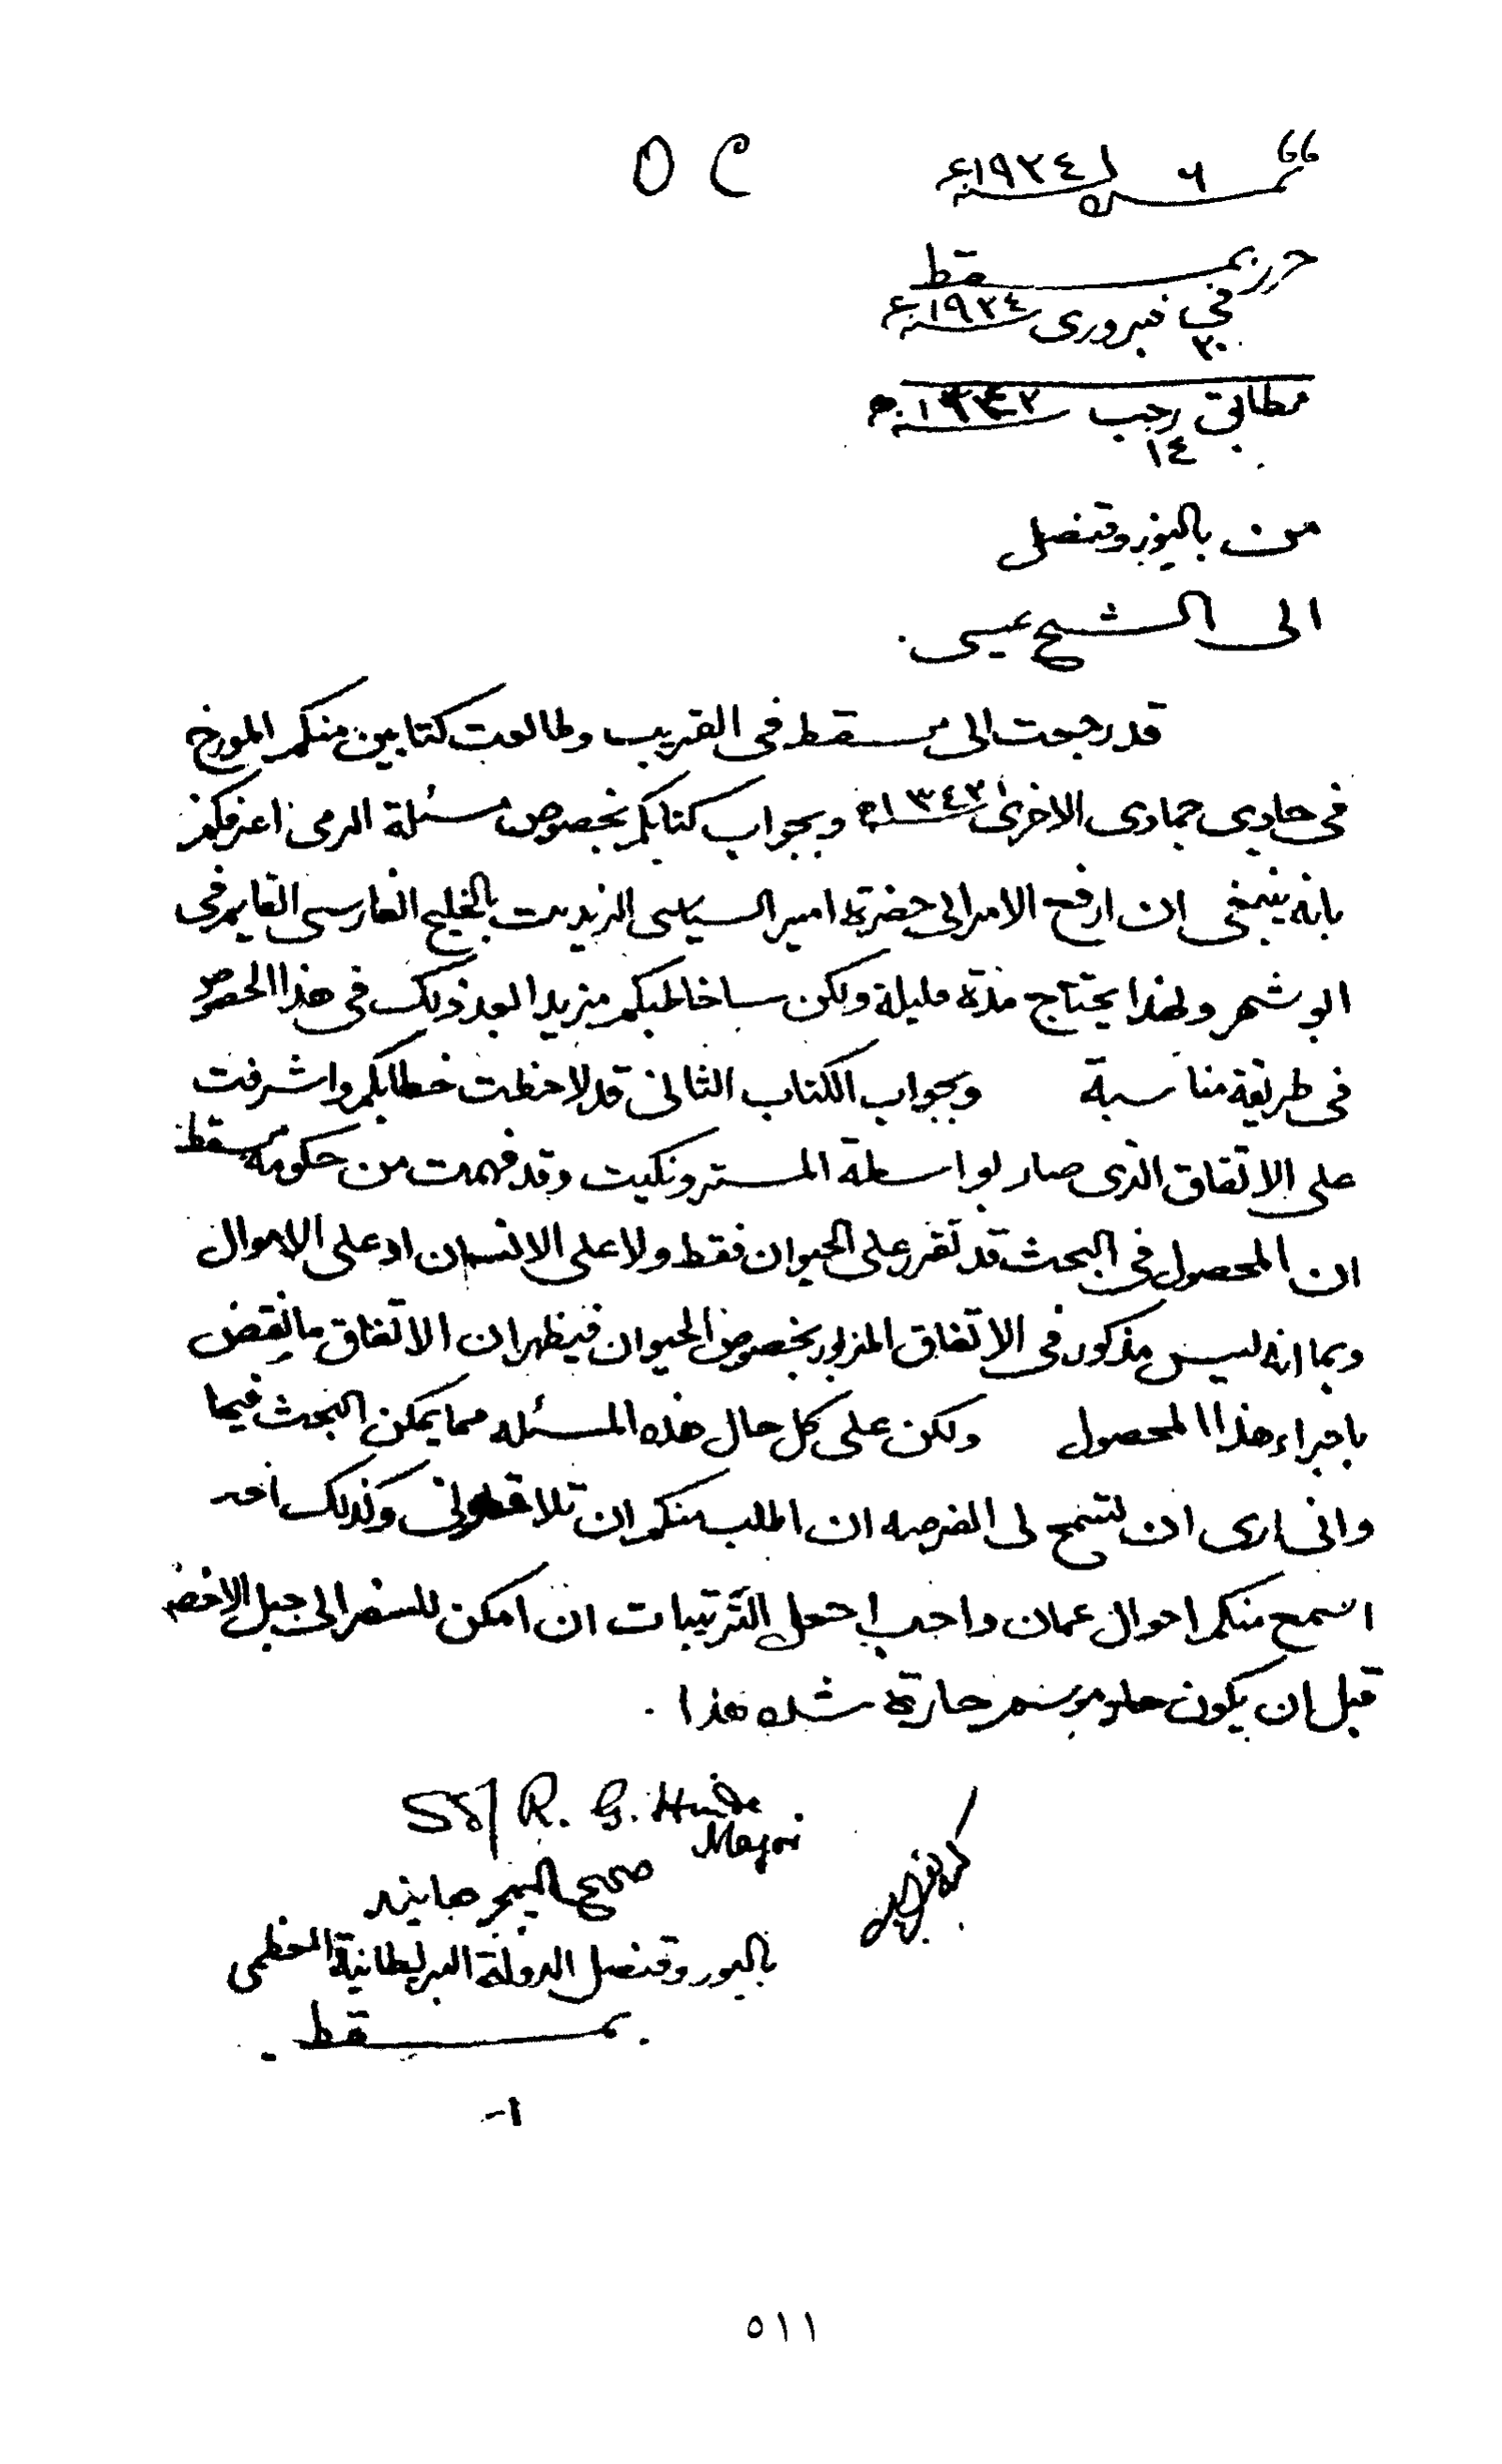 نمر ٦ سنه ١٩٢٤ء O C
حرر بمسقط
في ٢٠ فبروري سنه ١٩٢٤ء
مطابق ١٤ رجب سنه ١٣٤٢ه
من باليوز وقنصل
الى الشيخ عيسى.
قد رجعت الى مسقط في القريب وطالعت كتابين منكم المورخ
في حادي جمادى الاخرى ١٣٤٢ه وبجواب كتابكم بخصوص مسئلة الرمي اعرفكم
بانه ينبغي ان ارفع الامر الى حضرة امير السياسي الزيدنت بالخليج الفارسي القايم في
ابو شهر ولهذا يحتاج مدة قليلة ولكن ساخاطبكم مزيدا بعد ذلك في هذا الخصوص
في طريقة مناسبة وبجواب الكتاب الثاني قد لاحظت خطابكم واشرفت
على الاتفاق الذي صار بواسطة المستر ونكيت وقد فهمت من حكومة مسقط
ان المحصول في البحث قد تقرر على الحيوان فقط ولا على الانسان او على الاموال
وبما انه ليس مذكور في الاتفاق المزبور بخصوص الحيوان فيظهر ان الاتفاق ما نقض
باجراء هذا المحصول ولكن على كل حال هذه المسئله مما يمكن البحث فيها
واني ارى ان تسمح لى الفرصه ان اطلب منكم ان تلاقوني وكذلك
اسمع منكم احوال عمان واحب اجعل الترتيبات ان امكن للسفر الى جبل الاخضر
قبل ان يكون موسم حارة شده هذا.
Sd/ R. G. Hinde
Major
صحيح الميجر هايند
باليوز وقنصل الدولة البريطانية العظمى
بمسقط.
-١
٥١١